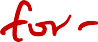 for -